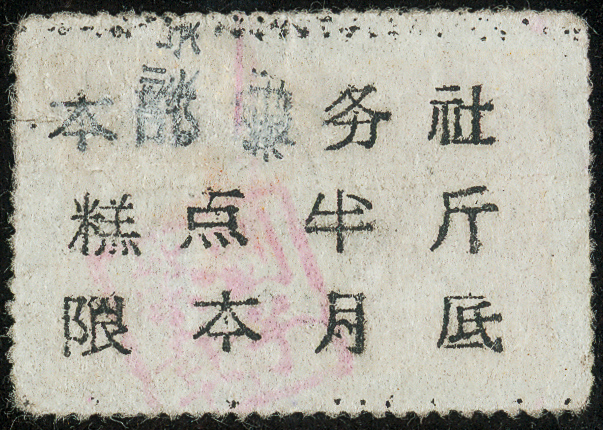 本 务社
糕点半斤
限本月底